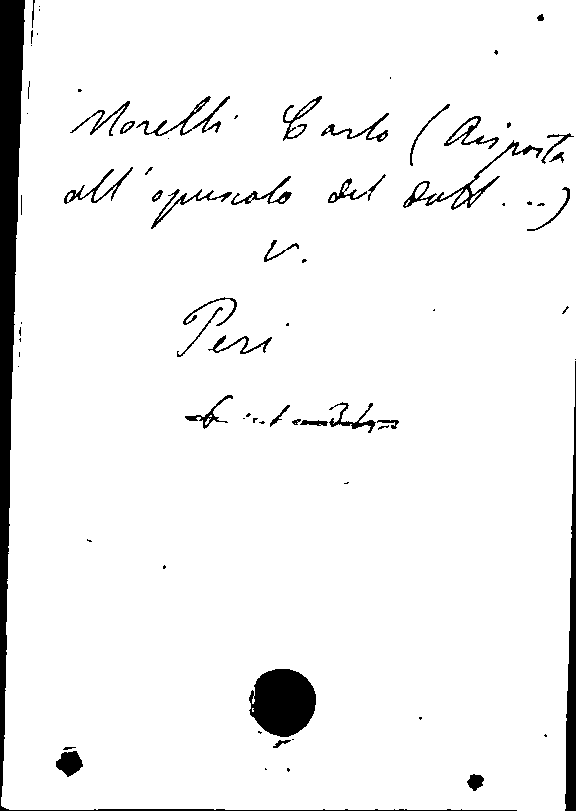 Morelli Carlo (Risposta
all'opuscolo del dott...)
v.
Peri